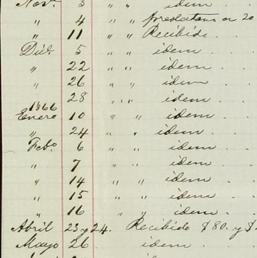 Nov. 3 " " idem .
" 4 " " 20
" 11 " " Recibido .
Dicb. 5 " " idem .
" 22 " " idem .
" 26 " " idem .
" 28 " " idem .
1866
Enero 10 " " idem .
" 24 " " idem .
Febo 6 " " idem .
" 7 " " idem .
" 14 " " idem
" 15 " " idem
" 16 " " idem
Abril 23 y 24. Recibido $80. y $
Mayo 26 idem